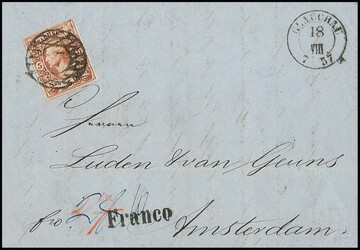 GLAUCHAU
18
VIII
7 57
Herren
Luden & van Geuns
fro.
Franco
Amsterdam.